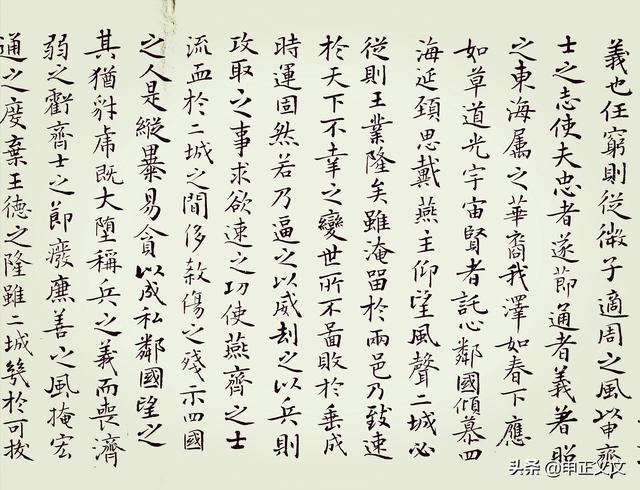 義也任窮則從微子適周之風以申齊
士之志使夫忠者遂節通者義著昭
之東海屬之華裔我澤如春下應
如草道光宇宙賢者託心鄰國傾慕四
海延頸思戴燕主仰望風聲二城必
從則王業隆矣雖淹留於兩邑乃致速
於天下不幸之變世所不啚敗於垂成
時運固然若乃逼之以威劫之以兵則
攻取之事求欲速之功使燕齊之士
流血於二城之間侈殺傷之殘示四國
之人是縱暴易貪以成私鄰國望之
其猶豺虎既大墮稱兵之義而喪濟
弱之虧齊士之節廢廉善之風掩宏
通之度棄王德之隆雖二城幾於可拔
头条 @申正义文